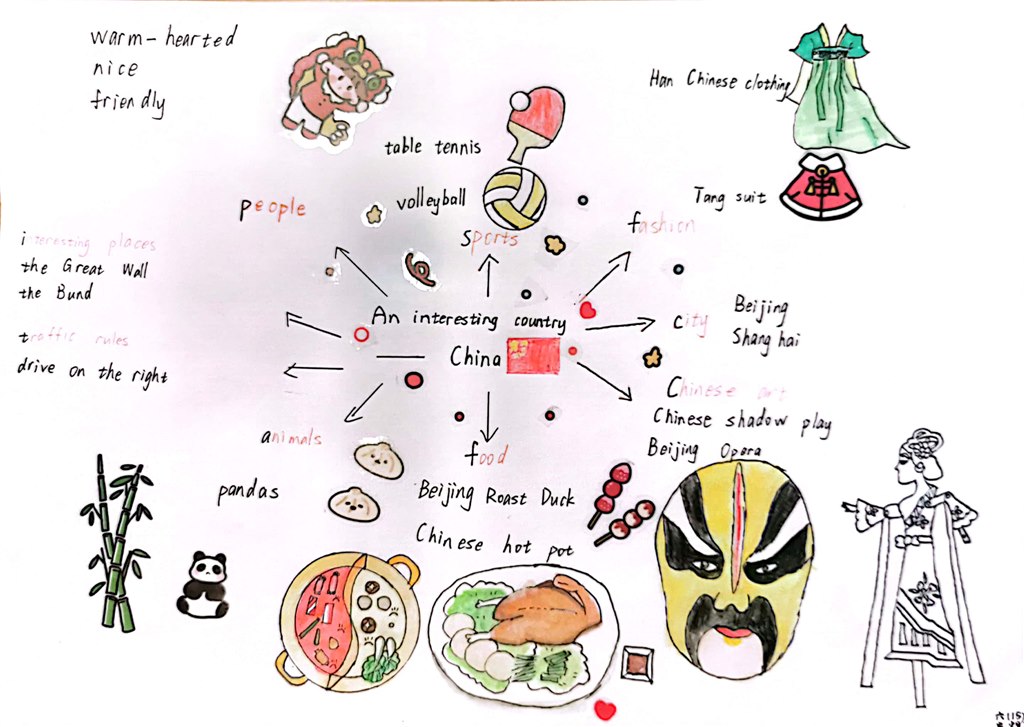 warm-hearted
nice
friendly
Han Chinese clothing
table tennis
Tang suit
volleyball
people
sports
fashion
interesting places
the Great Wall
the Bund
An interesting country
China
city
Beijing
Shanghai
traffic rules
drive on the right
Chinese art
Chinese shadow play
Beijing Opera
animals
pandas
food
Beijing Roast Duck
Chinese hot pot